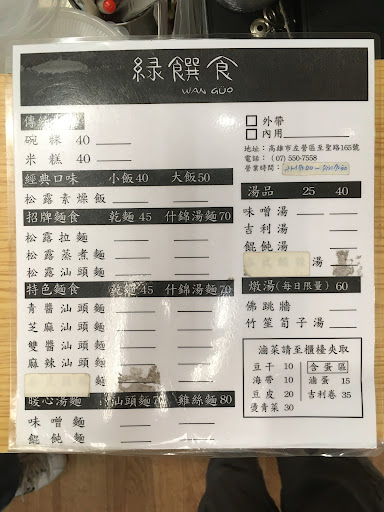 綠饌食
WAN GUO
傳統
碗粿 40
米糕 40
經典口味 小飯40 大飯50
松露素燥飯
招牌麵食 乾麵 45 什錦湯麵70
松露拉麵
松露蒸煮麵
松露汕頭麵
特色麵食 乾麵 45 什錦湯麵70
青醬汕頭麵
芝麻汕頭麵
雙醬汕頭麵
麻辣汕頭麵
麵
暖心湯麵 汕頭麵70 雞絲麵80
味噌麵
餛飩麵
外帶
內用
地址：高雄市左營區至聖路165號
電話：(07) 550-7558
營業時間：
湯品 25 40
味噌湯
吉利湯
餛飩湯
湯
燉湯(每日限量) 60
佛跳牆
竹笙筍子湯
滷菜請至櫃檯夾取
豆干 10
海帶 10
豆皮 20
燙青菜 30
含蛋區
滷蛋 15
吉利卷 35